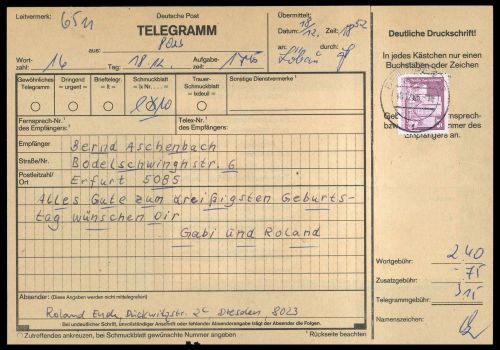 Leitvermerk: 6511
Deutsche Post
TELEGRAMM
Übermittelt:
Datum: 18/12 Zeit: 1852
Deutliche Druckschrift!
In jedes Kästchen nur einen
Buchstaben oder Zeichen
aus:
Wort-
zahl: 16
Tag: 18.12.
Aufgabe-
zeit: 1745
an:
durch:
Gewöhnliches
Telegramm
Dringend
= urgent =
Brieftelegr.
= lt =
Schmuckblatt
= lx Nr. =
Trauer-
Schmuckblatt
= lxdeuil =
Sonstige Dienstvermerke¹
Fernsprech-Nr.¹
des Empfängers:
Telex-Nr.¹
des Empfängers:
Empfänger Bernd Aschenbach
Straße/Nr. Bodelschwinghstr. 6
Postleitzahl/
Ort Erfurt 5085
Alles Gute zum dreißigsten Geburts-
tag wünschen Dir
Gabi und Roland
Wortgebühr: 2,40
Zusatzgebühr: -,75
Telegrammgebühr: 3,15
Namenszeichen:
Absender: (Diese Angaben werden nicht mittelegrafiert)
Roland Ende, Dückwitzstr. 2c Dresden, 8023
Bei undeutlicher Schrift, unvollständiger Anschrift oder fehlender Absenderangabe trägt der Absender die Folgen.
Zutreffendes ankreuzen, bei Schmuckblatt gewünschte Nummer angeben
¹ Rückseite beachten